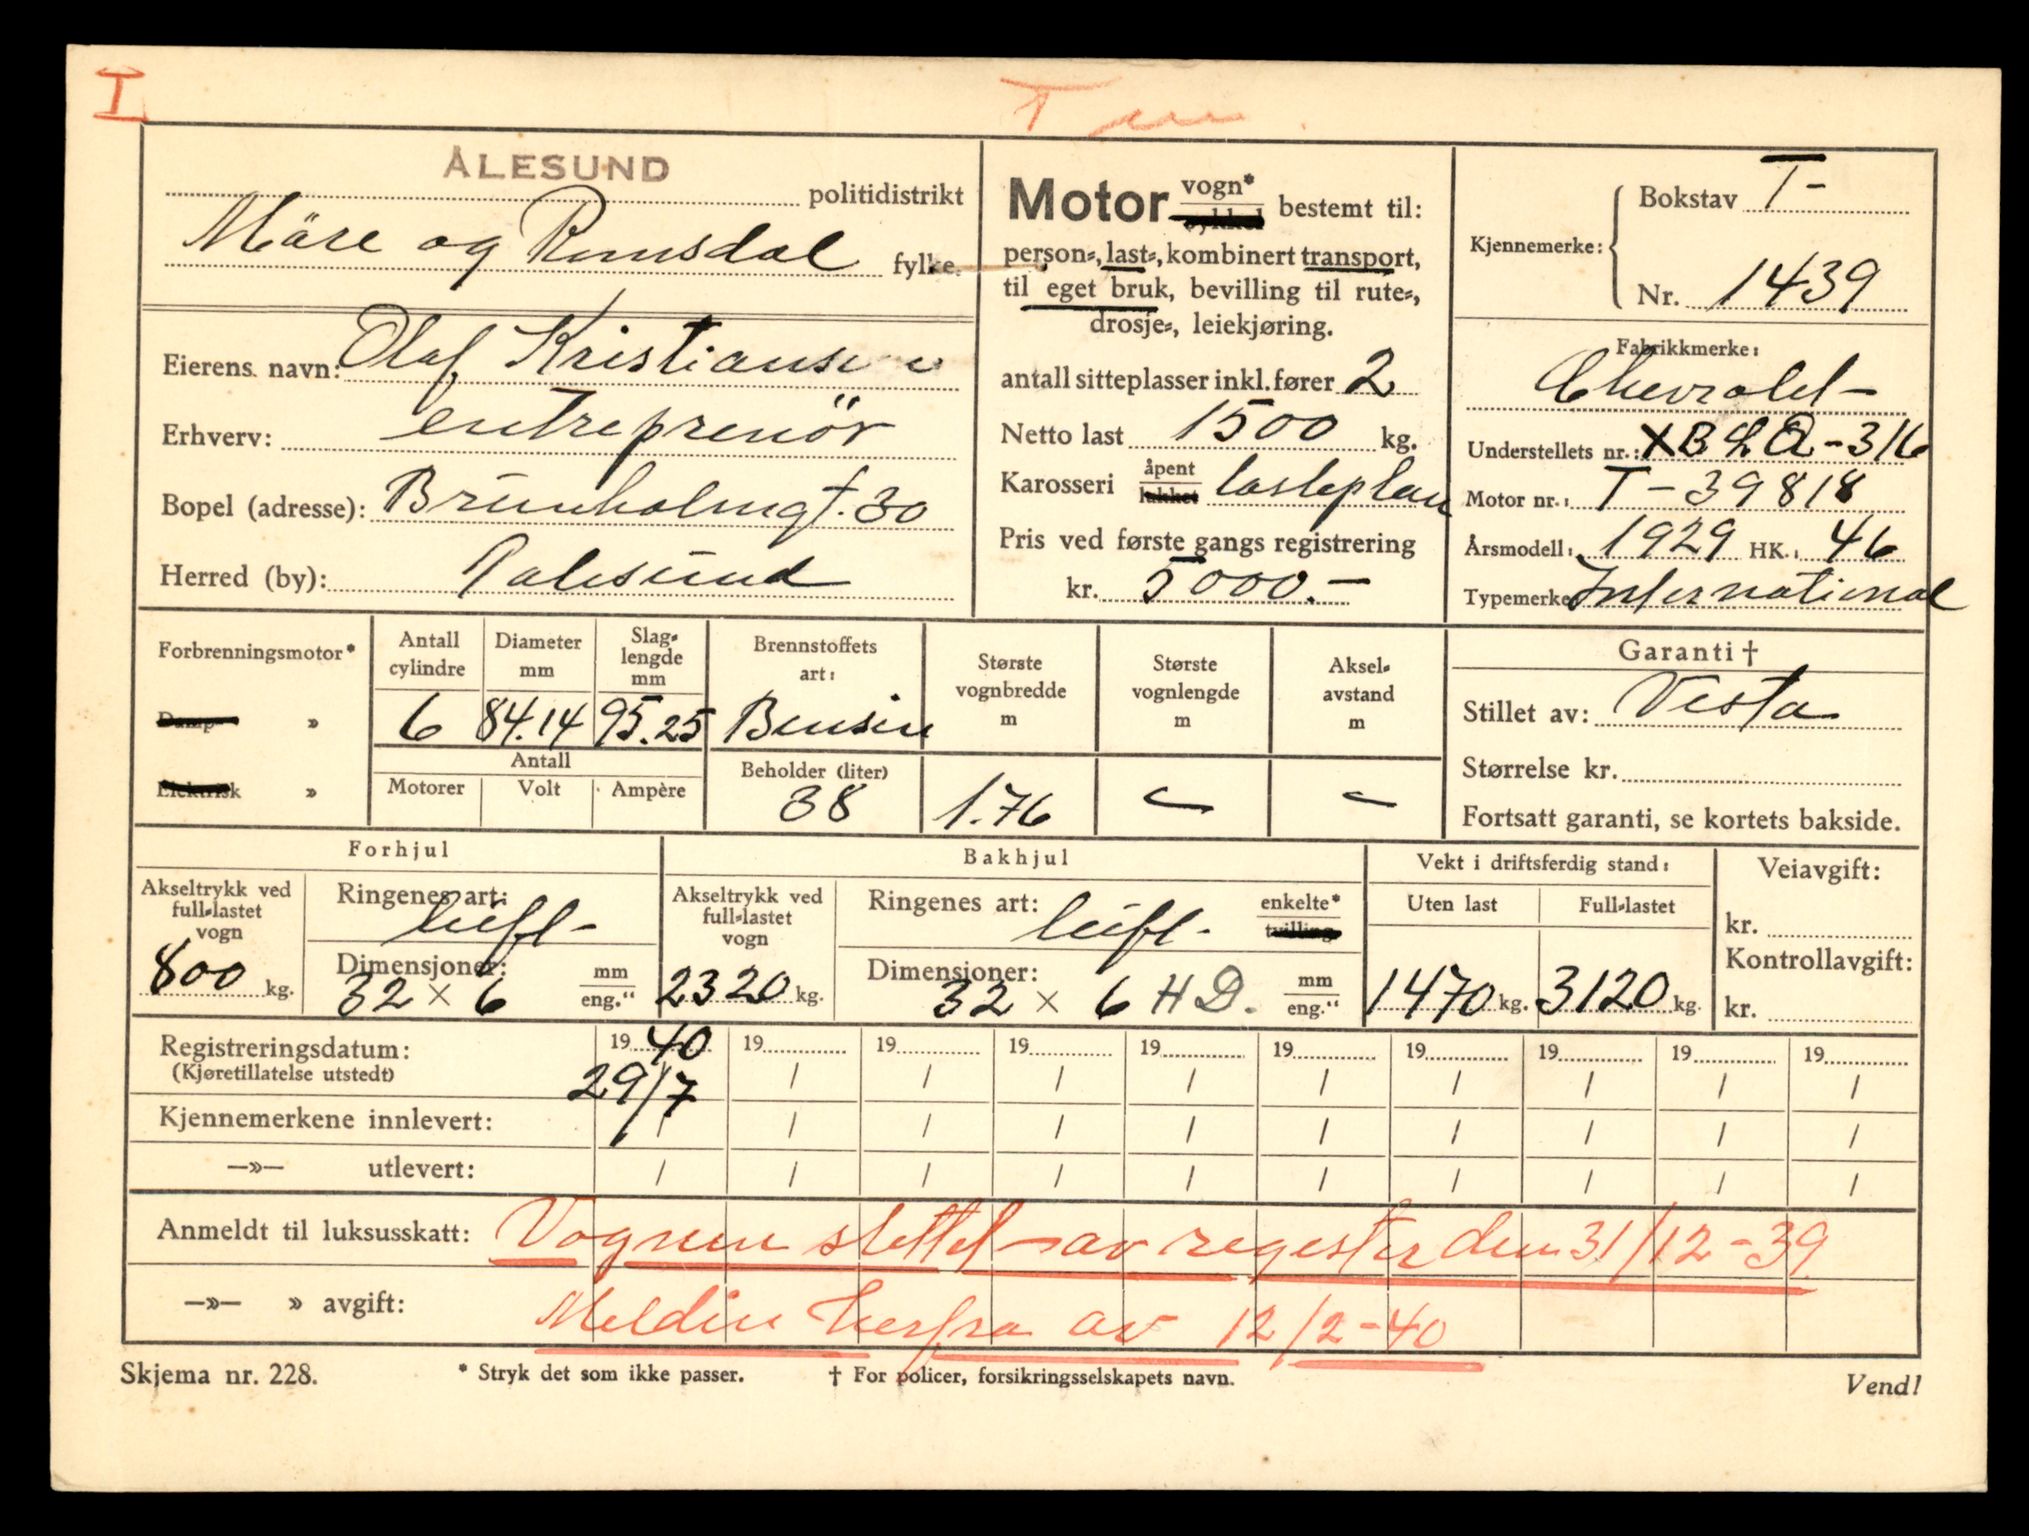 I
T
ÅLESUND
politidistrikt
Möre og Romsdal fylke.
Eierens navn: Olaf Kristiansen
Erhverv: entreprenör
Bopel (adresse): Brunholmgt. 30
Herred (by): Aalesund
Motor vogn* sykkel bestemt til:
person-, last-, kombinert transport,
til eget bruk, bevilling til rute-,
drosje-, leiekjøring.
antall sitteplasser inkl. fører 2
Netto last 1500 kg.
Karosseri åpent lukket lasteplan
Pris ved første gangs registrering
kr. 5000.-
Kjennemerke: Bokstav T-
Nr. 1439
Fabrikkmerke:
Chevrolet-
Understellets nr.: XBLQ-316
Motor nr.: T-39818
Årsmodell: 1929 HK.: 46
Typemerke International
Forbrenningsmotor*
Damp- »
Elektrisk »
Antall cylindre 6
Diameter mm 84.14
Slag-lengde mm 95.25
Antall
Motorer Volt Ampère
Brennstoffets art: Bensin
Beholder (liter) 38
Største vognbredde m 1.76
Største vognlengde m -
Aksel-avstand m -
Garanti †
Stillet av: Vesta
Størrelse kr.
Fortsatt garanti, se kortets bakside.
Forhjul
Akseltrykk ved full-lastet vogn 800 kg.
Ringenes art: luft-
Dimensjoner: 32 × 6 mm eng."
Bakhjul
Akseltrykk ved full-lastet vogn 2320 kg.
Ringenes art: luft- enkelte* tvilling
Dimensjoner: 32 × 6 HD. mm eng."
Vekt i driftsferdig stand:
Uten last 1470 kg.
Full-lastet 3120 kg.
Veiavgift:
kr.
Kontrollavgift:
kr.
Registreringsdatum: 1940 19 19 19 19 19 19 19 19 19
(Kjøretillatelse utstedt) 29/7 / / / / / / / / /
Kjennemerkene innlevert: / / / / / / / / / /
—»— utlevert: / / / / / / / / / /
Anmeldt til luksusskatt: Vognen slettet av register den 31/12-39
—»— » avgift: Meldin herfra av 12/2-40
Skjema nr. 228. * Stryk det som ikke passer. † For policer, forsikringsselskapets navn. Vend!